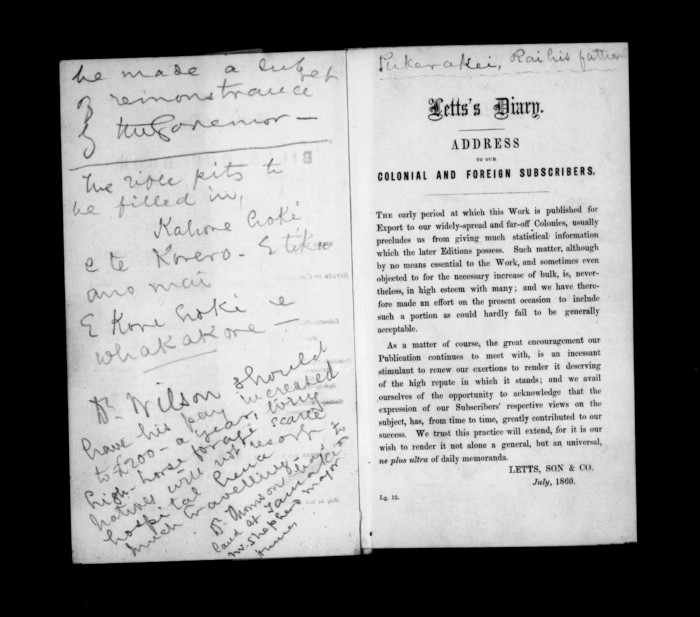 be made a subject
of remonstrance
by the Governor —
The rifle pits to
be filled in,
Kahore hoki
e te Korero - E tika
ano mai
E Kore hoki e
whakakore —
Dr. Wilson should
have his pay increased
to £200 - a year, living
high. horse forage scarce
natives will not resort to
hospital hence
much travelling.
Dr
land at
Mr Shepherd major
Pukerakei, Rai his father
Letts's Diary.
ADDRESS
TO OUR
COLONIAL AND FOREIGN SUBSCRIBERS.
THE early period at which this Work is published for
Export to our widely-spread and far-off Colonies, usually
precludes us from giving much statistical information
which the later Editions possess. Such matter, although
by no means essential to the Work, and sometimes even
objected to for the necessary increase of bulk, is, never-
theless, in high esteem with many; and we have there-
fore made an effort on the present occasion to include
such a portion as could hardly fail to be generally
acceptable.
As a matter of course, the great encouragement our
Publication continues to meet with, is an incessant
stimulant to renew our exertions to render it deserving
of the high repute in which it stands; and we avail
ourselves of the opportunity to acknowledge that the
expression of our Subscribers' respective views on the
subject, has, from time to time, greatly contributed to our
success. We trust this practice will extend, for it is our
wish to render it not alone a general, but an universal,
ne plus ultra of daily memoranda.
LETTS, SON & CO.
July, 1860.
Lg. 12.